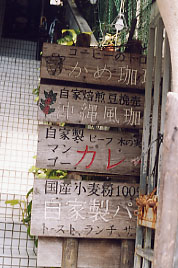 コーヒーの
かめ珈
自家焙煎豆挽売
沖縄風珈
自家製ビーフ
マンゴー
カレ
国産小麦粉100%
自家製パ
トースト、ランチ